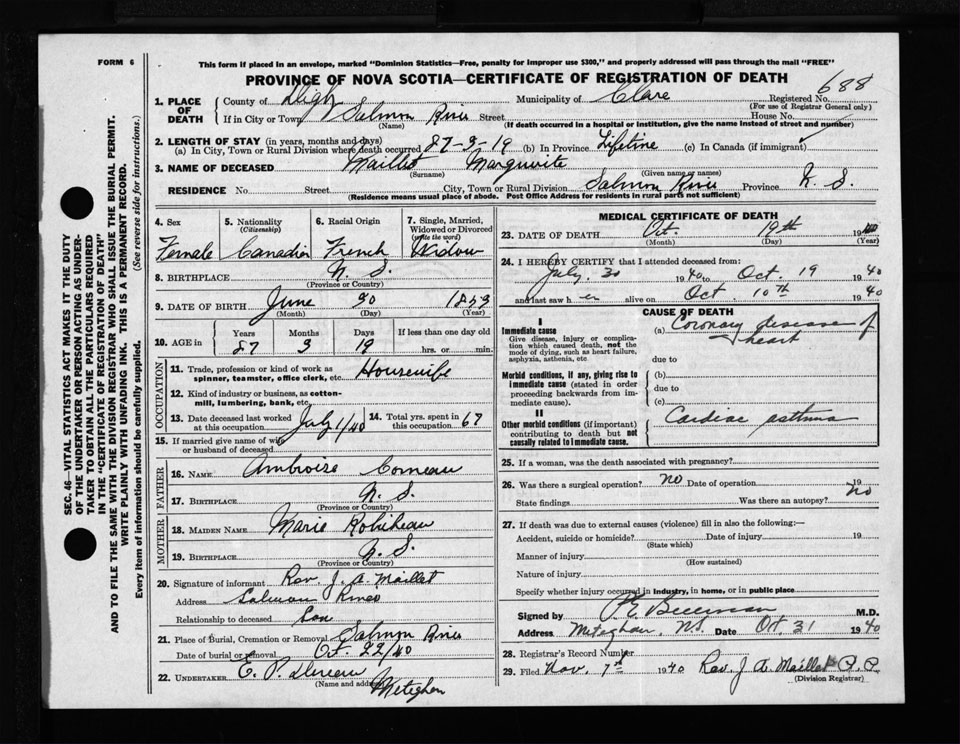 FORM 6
This form if placed in an envelope, marked "Dominion Statistics—Free, penalty for improper use $300," and properly addressed will pass through the mail "FREE"
PROVINCE OF NOVA SCOTIA—CERTIFICATE OF REGISTRATION OF DEATH
688
1. PLACE OF DEATH County of Digby Municipality of Clare Registered No.
(For use of Registrar General only)
If in City or Town Salmon River Street House No.
(Name) (If death occurred in a hospital or institution, give the name instead of street and number)
2. LENGTH OF STAY (in years, months and days)
(a) In City, Town or Rural Division where death occurred 87-3-19 (b) In Province Lifetime (c) In Canada (if immigrant)
3. NAME OF DECEASED Maillet Marguerite
(Surname) (Given name or names)
RESIDENCE No. Street City, Town or Rural Division Salmon River Province N. S.
(Residence means usual place of abode. Post Office Address for residents in rural parts not sufficient)
4. Sex 5. Nationality (Citizenship) 6. Racial Origin 7. Single, Married, Widowed or Divorced (write the word)
Female Canadian French Widow
8. BIRTHPLACE N. S.
(Province or Country)
9. DATE OF BIRTH June 30 1853
(Month) (Day) (Year)
10. AGE in Years Months Days If less than one day old
87 3 19 hrs. or min.
OCCUPATION
11. Trade, profession or kind of work as spinner, teamster, office clerk, etc. Housewife
12. Kind of industry or business, as cotton-mill, lumbering, bank, etc.
13. Date deceased last worked at this occupation July 1/40 14. Total yrs. spent in this occupation 67
15. If married give name of wife or husband of deceased
FATHER
16. NAME Ambroise Comeau
17. BIRTHPLACE N. S.
(Province or Country)
MOTHER
18. MAIDEN NAME Marie Robiheau
19. BIRTHPLACE N. S.
(Province or Country)
20. Signature of informant Rev. J. A. Maillet
Address Salmon River
Relationship to deceased Son
21. Place of Burial, Cremation or Removal Salmon River
Date of burial or removal Oct. 22/40
22. UNDERTAKER E. P.
(Name and address) Meteghan
MEDICAL CERTIFICATE OF DEATH
23. DATE OF DEATH Oct. 19th 1940
(Month) (Day) (Year)
24. I HEREBY CERTIFY that I attended deceased from:
July 30 1940 to Oct. 19 1940
and last saw her alive on Oct. 10th 1940
CAUSE OF DEATH
I
Immediate cause
Give disease, injury or complication which caused death, not the mode of dying, such as heart failure, asphyxia, asthenia, etc.
(a) Coronary disease of heart
due to
Morbid conditions, if any, giving rise to immediate cause (stated in order proceeding backwards from immediate cause).
(b)
due to
(c)
II
Other morbid conditions (if important) contributing to death but not causally related to immediate cause.
Cardiac asthma
25. If a woman, was the death associated with pregnancy?
26. Was there a surgical operation? No Date of operation 19
State findings Was there an autopsy? No
27. If death was due to external causes (violence) fill in also the following:—
Accident, suicide or homicide? Date of injury 19
(State which)
Manner of injury
(How sustained)
Nature of injury
Specify whether injury occurred in industry, in home, or in public place
Signed by M.D.
Address Meteghan, N.S. Date Oct. 31 1940
28. Registrar's Record Number
29. Filed Nov. 7th 1940 Rev. J. A. Maillet P. P.
(Division Registrar)
SEC. 46—VITAL STATISTICS ACT MAKES IT THE DUTY
OF THE UNDERTAKER OR PERSON ACTING AS UNDER-
TAKER TO OBTAIN ALL THE PARTICULARS REQUIRED
IN THE "CERTIFICATE OF REGISTRATION OF DEATH"
AND TO FILE THE SAME WITH THE DIVISION REGISTRAR WHO SHALL ISSUE THE BURIAL PERMIT.
WRITE PLAINLY WITH UNFADING INK. THIS IS A PERMANENT RECORD.
Every item of information should be carefully supplied. (See reverse side for instructions.)